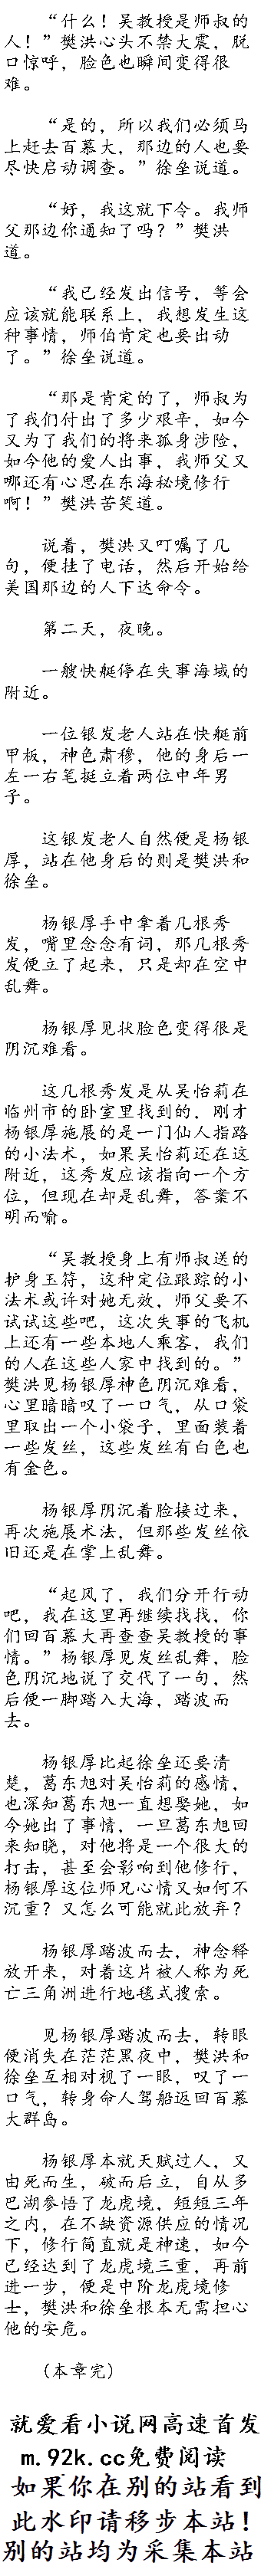 “什么！吴教授是师叔的
人！”樊洪心头不禁大震，脱
口惊呼，脸色也瞬间变得很
难。
“是的，所以我们必须马
上赶去百慕大，那边的人也要
尽快启动调查。”徐垒说道。
“好，我这就下令。我师
父那边你通知了吗？”樊洪
道。
“我已经发出信号，等会
应该就能联系上，我想发生这
种事情，师伯肯定也要出动
了。”徐垒说道。
“那是肯定的了，师叔为
了我们付出了多少艰辛，如今
又为了我们的将来孤身涉险，
如今他的爱人出事，我师父又
哪还有心思在东海秘境修行
啊！”樊洪苦笑道。
说着，樊洪又叮嘱了几
句，便挂了电话，然后开始给
美国那边的人下达命令。
第二天，夜晚。
一艘快艇停在失事海域的
附近。
一位银发老人站在快艇前
甲板，神色肃穆，他的身后一
左一右笔挺立着两位中年男
子。
这银发老人自然便是杨银
厚，站在他身后的则是樊洪和
徐垒。
杨银厚手中拿着几根秀
发，嘴里念念有词，那几根秀
发便立了起来，只是却在空中
乱舞。
杨银厚见状脸色变得很是
阴沉难看。
这几根秀发是从吴怡莉在
临州市的卧室里找到的，刚才
杨银厚施展的是一门仙人指路
的小法术，如果吴怡莉还在这
附近，这秀发应该指向一个方
位，但现在却是乱舞，答案不
明而喻。
“吴教授身上有师叔送的
护身玉符，这种定位跟踪的小
法术或许对她无效，师父要不
试试这些吧，这次失事的飞机
上还有一些本地人乘客，我们
的人在这些人家中找到的。”
樊洪见杨银厚神色阴沉难看，
心里暗暗叹了一口气，从口袋
里取出一个小袋子，里面装着
一些发丝，这些发丝有白色也
有金色。
杨银厚阴沉着脸接过来，
再次施展术法，但那些发丝依
旧还是在掌上乱舞。
“起风了，我们分开行动
吧，我在这里再继续找找，你
们回百慕大再查查吴教授的事
情。”杨银厚见发丝乱舞，脸
色阴沉地说了交代了一句，然
后便一脚踏入大海，踏波而
去。
杨银厚比起徐垒还要清
楚，葛东旭对吴怡莉的感情，
也深知葛东旭一直想娶她，如
今她出了事情，一旦葛东旭回
来知晓，对他将是一个很大的
打击，甚至会影响到他修行，
杨银厚这位师兄心情又如何不
沉重？又怎么可能就此放弃？
杨银厚踏波而去，神念释
放开来，对着这片被人称为死
亡三角洲进行地毯式搜索。
见杨银厚踏波而去，转眼
便消失在茫茫黑夜中，樊洪和
徐垒互相对视了一眼，叹了一
口气，转身命人驾船返回百慕
大群岛。
杨银厚本就天赋过人，又
由死而生，破而后立，自从多
巴湖参悟了龙虎境，短短三年
之内，在不缺资源供应的情况
下，修行简直就是神速，如今
已经达到了龙虎境三重，再前
进一步，便是中阶龙虎境修
士，樊洪和徐垒根本无需担心
他的安危。
（本章完）
就爱看小说网高速首发
m.92k.cc免费阅读
如果你在别的站看到
此水印请移步本站！
别的站均为采集本站